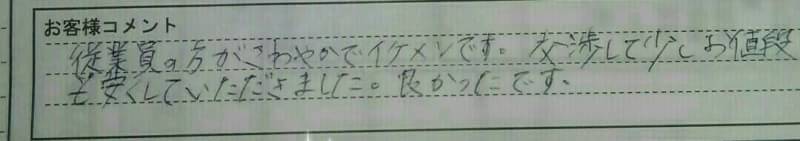 お客様コメント
従業員の方がさわやかでイケメンです。交渉して少しお値段
も安くしていただきました。良かったです。